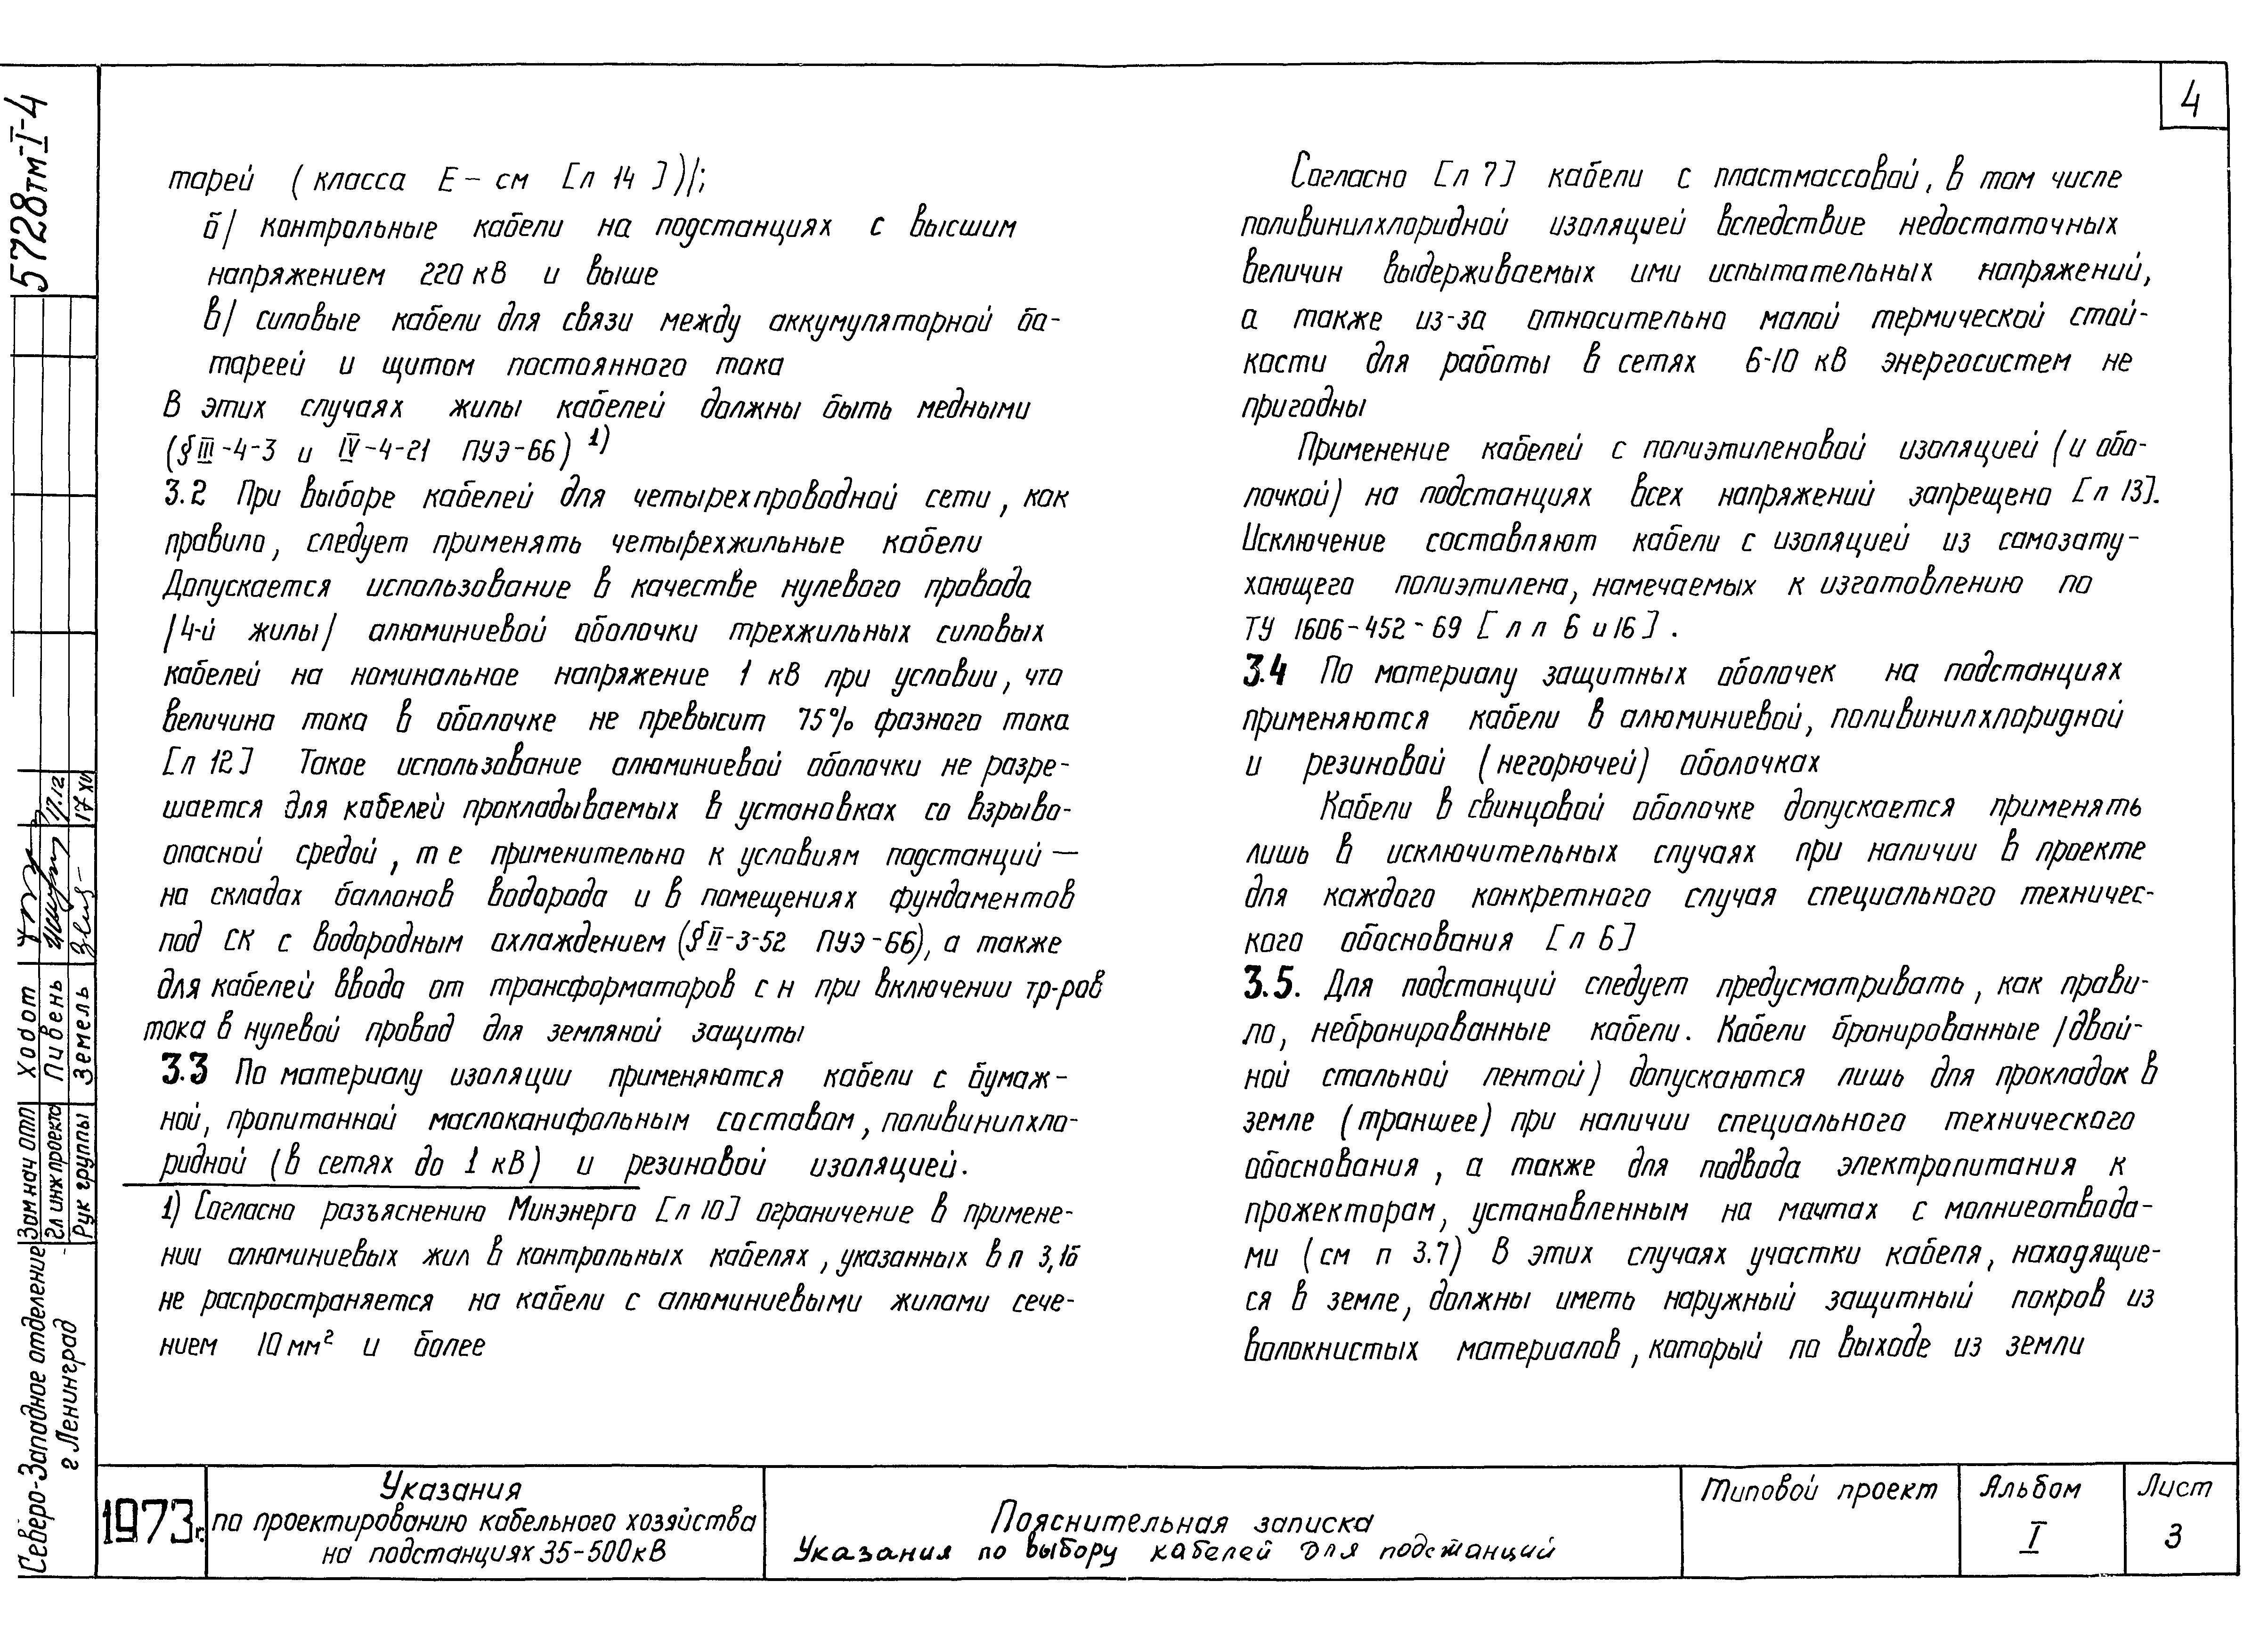 4
5728тм-I-4
тарей (класса Е-см [л 14])/;
б/ контрольные кабели на подстанциях с высшим
напряжением 220 кВ и выше
в/ силовые кабели для связи между аккумуляторной ба-
тареей и щитом постоянного тока
В этих случаях жилы кабелей должны быть медными
(§ III-4-3 и IV-4-21 ПУЭ-66) 1)
3.2 При выборе кабелей для четырехпроводной сети, как
правило, следует применять четырехжильные кабели
Допускается использование в качестве нулевого провода
/4-й жилы/ алюминиевой оболочки трехжильных силовых
кабелей на номинальное напряжение 1 кВ при условии, что
величина тока в оболочке не превысит 75% фазного тока
[л 12] Такое использование алюминиевой оболочки не разре-
шается для кабелей прокладываемых в установках со взрыво-
опасной средой, т е применительно к условиям подстанций —
на складах баллонов водорода и в помещениях фундаментов
под СК с водородным охлаждением (§ II-3-52 ПУЭ-66), а также
для кабелей ввода от трансформаторов с н при включении тр-ров
тока в нулевой провод для земляной защиты
3.3 По материалу изоляции применяются кабели с бумаж-
ной, пропитанной маслоканифольным составом, поливинилхло-
ридной (в сетях до 1 кВ) и резиновой изоляцией.
1) Согласно разъяснению Минэнерго [л 10] ограничение в примене-
нии алюминиевых жил в контрольных кабелях, указанных в п 3,1б
не распространяется на кабели с алюминиевыми жилами сече-
нием 10 мм² и более
Согласно [л 7] кабели с пластмассовой, в том числе
поливинилхлоридной изоляцией вследствие недостаточных
величин выдерживаемых ими испытательных напряжений,
а также из-за относительно малой термической стой-
кости для работы в сетях 6-10 кВ энергосистем не
пригодны
Применение кабелей с полиэтиленовой изоляцией (и обо-
лочкой) на подстанциях всех напряжений запрещено [л 13].
Исключение составляют кабели с изоляцией из самозату-
хающего полиэтилена, намечаемых к изготовлению по
ТУ 1606-452-69 [л л 6 и 16].
3.4 По материалу защитных оболочек на подстанциях
применяются кабели в алюминиевой, поливинилхлоридной
и резиновой (негорючей) оболочках
Кабели в свинцовой оболочке допускается применять
лишь в исключительных случаях при наличии в проекте
для каждого конкретного случая специального техничес-
кого обоснования [л 6]
3.5. Для подстанций следует предусматривать, как прави-
ло, небронированные кабели. Кабели бронированные /двой-
ной стальной лентой) допускаются лишь для прокладок в
земле (траншее) при наличии специального технического
обоснования, а также для подвода электропитания к
прожекторам, установленным на мачтах с молниеотвода-
ми (см п 3.7) В этих случаях участки кабеля, находящие-
ся в земле, должны иметь наружный защитный покров из
волокнистых материалов, который по выходе из земли
Зам нач отп Ходот
Гл инж проекта Пивень 17.12
Рук группы Земель 17 XII
Северо-Западное отделение
г Ленинград
1973г.
Указания
по проектированию кабельного хозяйства
на подстанциях 35-500кВ
Пояснительная записка
Указания по выбору кабелей для подстанций
Типовой проект
Альбом
I
Лист
3